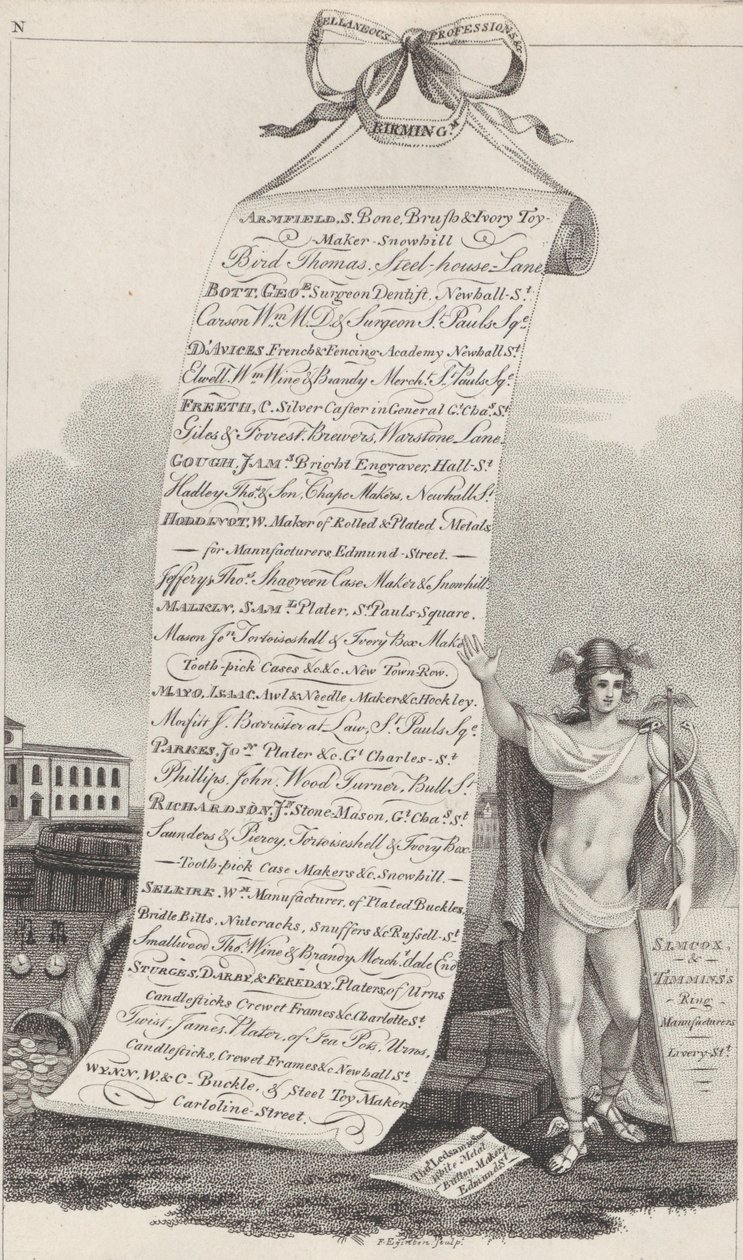 N
MISCELLANEOUS PROFESSIONS &c
BIRMING.M
ARMFIELD, S. Bone, Brush & Ivory Toy-
-Maker-Snowhill
Bird Thomas, Steel-house-Lane
BOTT, GEO.E Surgeon Dentist, Newhall-S.t
Carson W.m M.D & Surgeon S.t Pauls Sq.e
D'AVICES French & Fencing Academy Newhall S.t
Elwell W.m Wine & Brandy Merch.t S.t Pauls Sq.e
FREETH, C. Silver Caster in General G.t Cha.s S.t
Giles & Forrest, Brewers, Warstone Lane
GOUGH, JAM.S Bright Engraver, Hall-S.t
Hadley Tho.s & Son, Chape Makers, Newhall S.t
HODDINOT, W. Maker of Rolled & Plated Metals
— for Manufacturers, Edmund-Street. —
Jefferys Tho.s Shagreen Case Maker &c Snowhill
MALKIN, SAM.L Plater, S.t Pauls-Square.
Mason Jo.n Tortoiseshell & Ivory Box Make
Tooth-pick Cases &c &c. New Town-Row.
MAYO, ISAAC, Awl & Needle Maker &c. Hockley.
Morfitt J. Barrister at Law, S.t Pauls Sq.e
PARKES, JO.N Plater &c. G.t Charles-S.t
Phillips, John, Wood Turner, Bull S.t
RICHARDSON, J.N Stone-Mason, G.t Cha.s S.t
Saunders & Piercy, Tortoiseshell & Ivory Box
— Tooth-pick Case Makers &c. Snowhill. —
SELKIRK, W.M Manufacturer, of Plated Buckles,
Bridle Bitts, Nutcracks, Snuffers &c Russell-S.t
Smallwood Tho.s Wine & Brandy Merch.t dale End
STURGES, DARBY, & FEREDAY, Platers, of Urns
Candlesticks Crewet Frames &c. Charlotte S.t
Twist James, Plater, of Tea Pots, Urns,
Candlesticks, Crewet Frames &c Newhall S.t
WYNN, W. & C- Buckle, & Steel Toy Maker
Carloline-Street.
SIMCOX,
- & -
TIMMINS'S
- Ring -
Manufacturers
Livery-S.t
Tho.s Ledsam & Son
White Metal
Button Makers
Edmund S.t
F. Eginton. Sculp.t